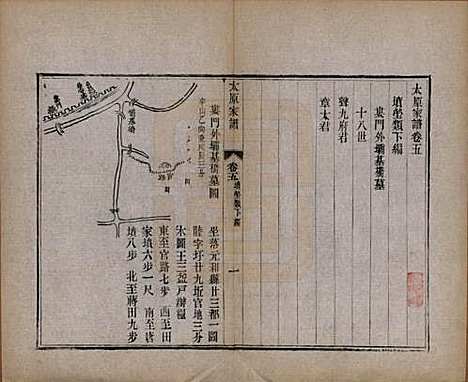 太原家譜卷五
墳塋類下編
婁門外壩基橋墓
十八世
聲九府君
章太君
太原家譜
卷五墳塋類下編
一
婁門外壩基橋墓圖
坐落元和縣廿三都一圖
陸字圩廿九坵官地三分
本圖王三盈戶辦糧
東至官路七步　西至田
家墳六步一尺　南至唐
墳八步　北至蔣田九步